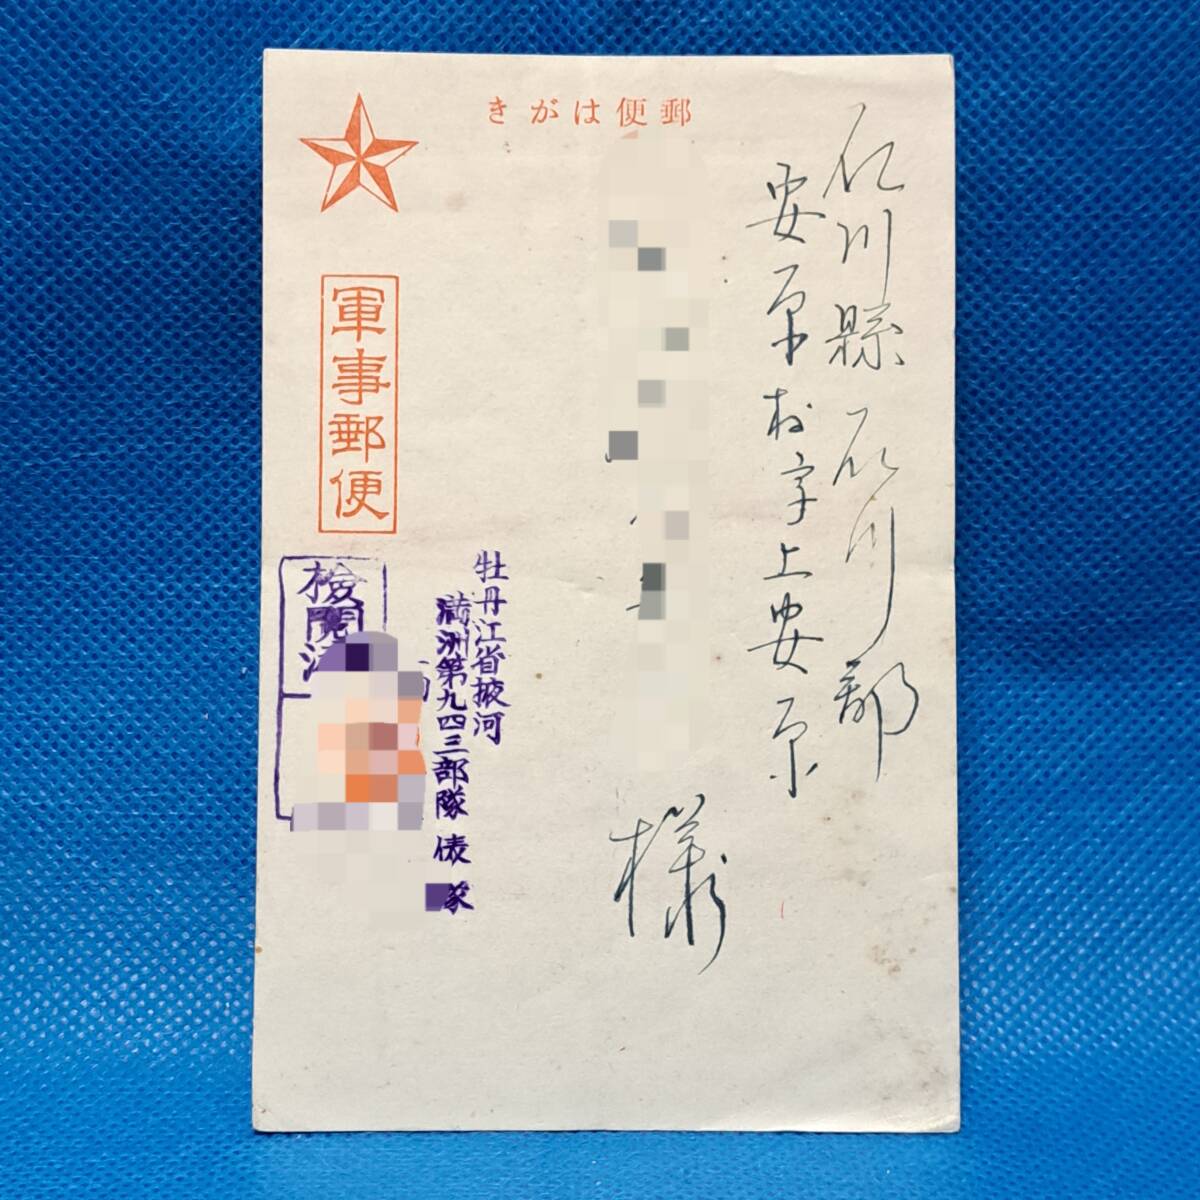 郵便はがき
石川縣石川郡
安原村字上安原
様
軍事郵便
牡丹江省掖河
満洲第九四三部隊 俵
検閲済